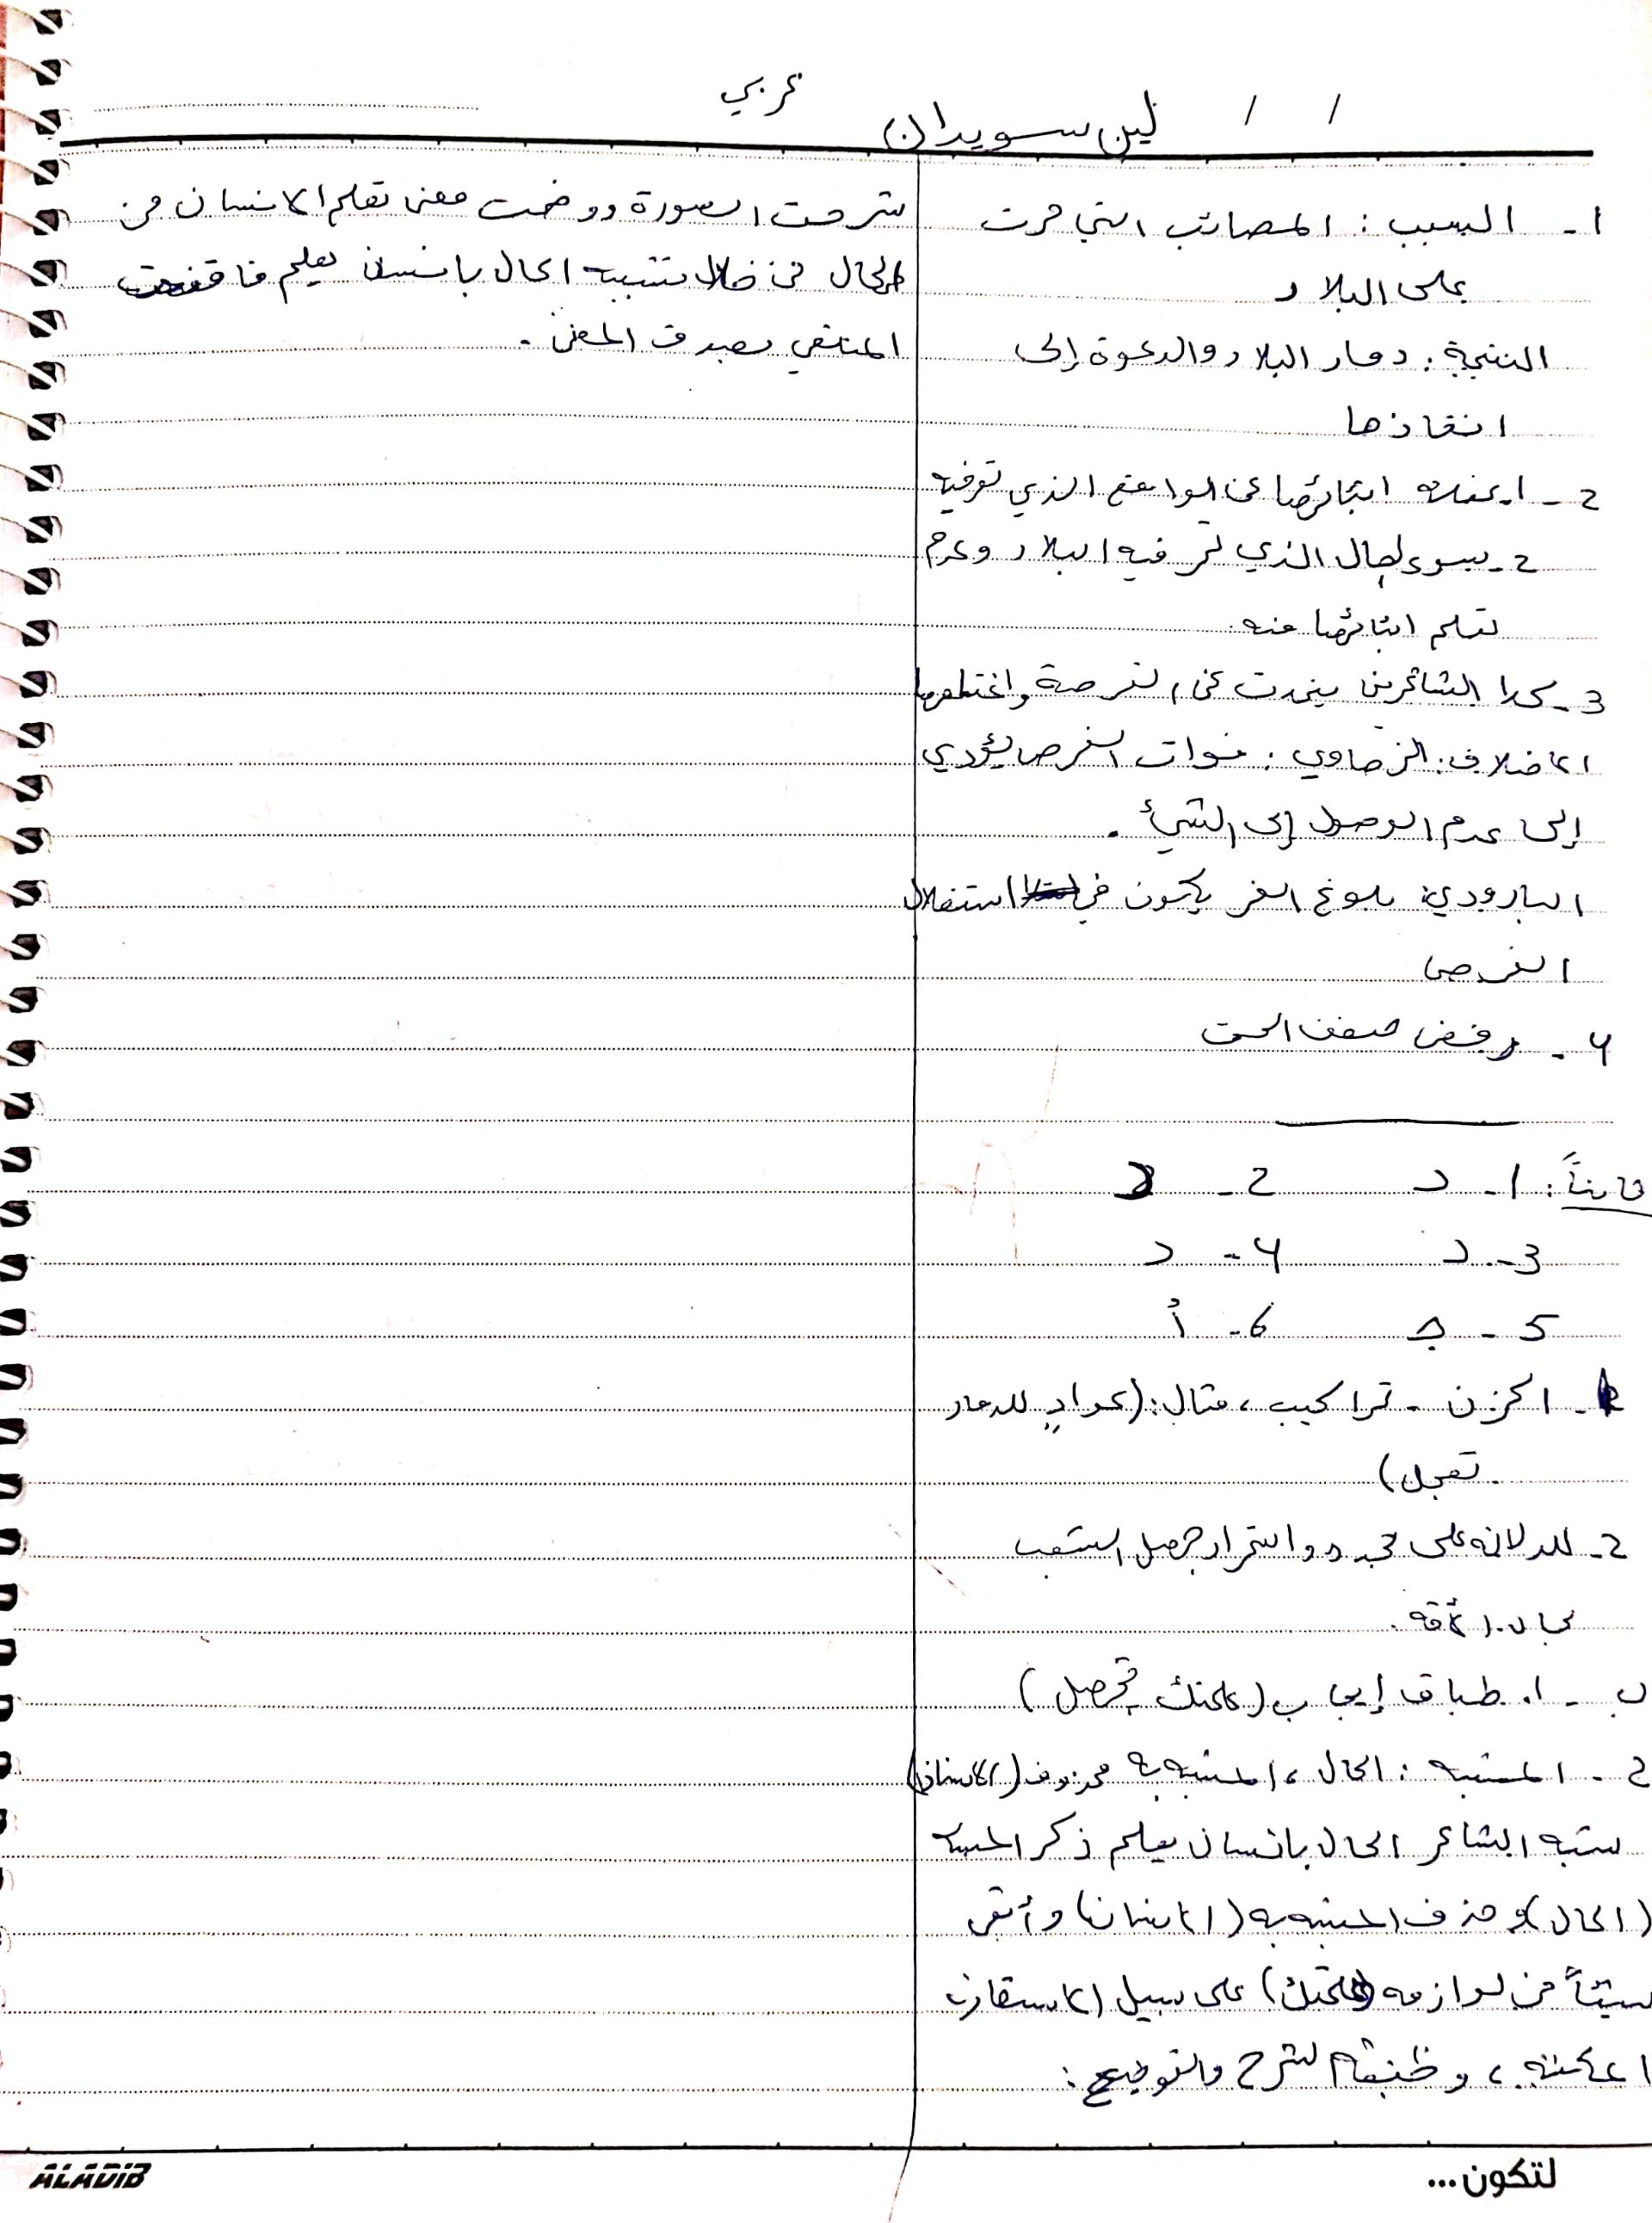 عربي
لين سويدان / /
1- السبب: المصائب التي مرت
على البلاد
النتيجة: دمار البلاد والدعوة إلى
انقاذها
2- 1- غفلة ابنائها عن الواقع الذي تمر فيه
2- بسوء الحال الذي تمر فيه البلاد وعدم
تعلم ابنائها منه.
3- كلا الشاعرين يتحدث عن الفرصة واغتنامها
الاختلاف: الرصاوي: فوات الفرص يؤدي
إلى عدم الوصول إلى الشيء.
البارودي: بلوغ العز يكون في استغلال
الفرص
4- رفض ضعف الصمت
ثانياً: 1- د 2- د
3- د 4- د
5- ج 6- أ
1- الحزن - تراكيب، مثال: (عوادٍ للدمار
تعجل)
2- للدلالة على تجدد واستمرار جهل الشعب
بحال الأمة.
ب - 1. طباق إيجاب (علمتك، تجهل)
2- المشبه: الحال، المشبه به محذوف (الانسان)
شبه الشاعر الحال بانسان يعلم ذكر المشبه
(الحال) وحذف المشبه به (الانسان) وأبقى
شيئاً من لوازمه (علمتك) على سبيل الاستعارة
المكنية، وظيفة الشرح والتوضيح:
شرحت الصورة ووضحت معنى تعلم الانسان من
الحال من خلال تشبيه الحال بانسان يعلم فاقنعت
المتلقي بصدق المعنى.
لتكون...
ALADIB